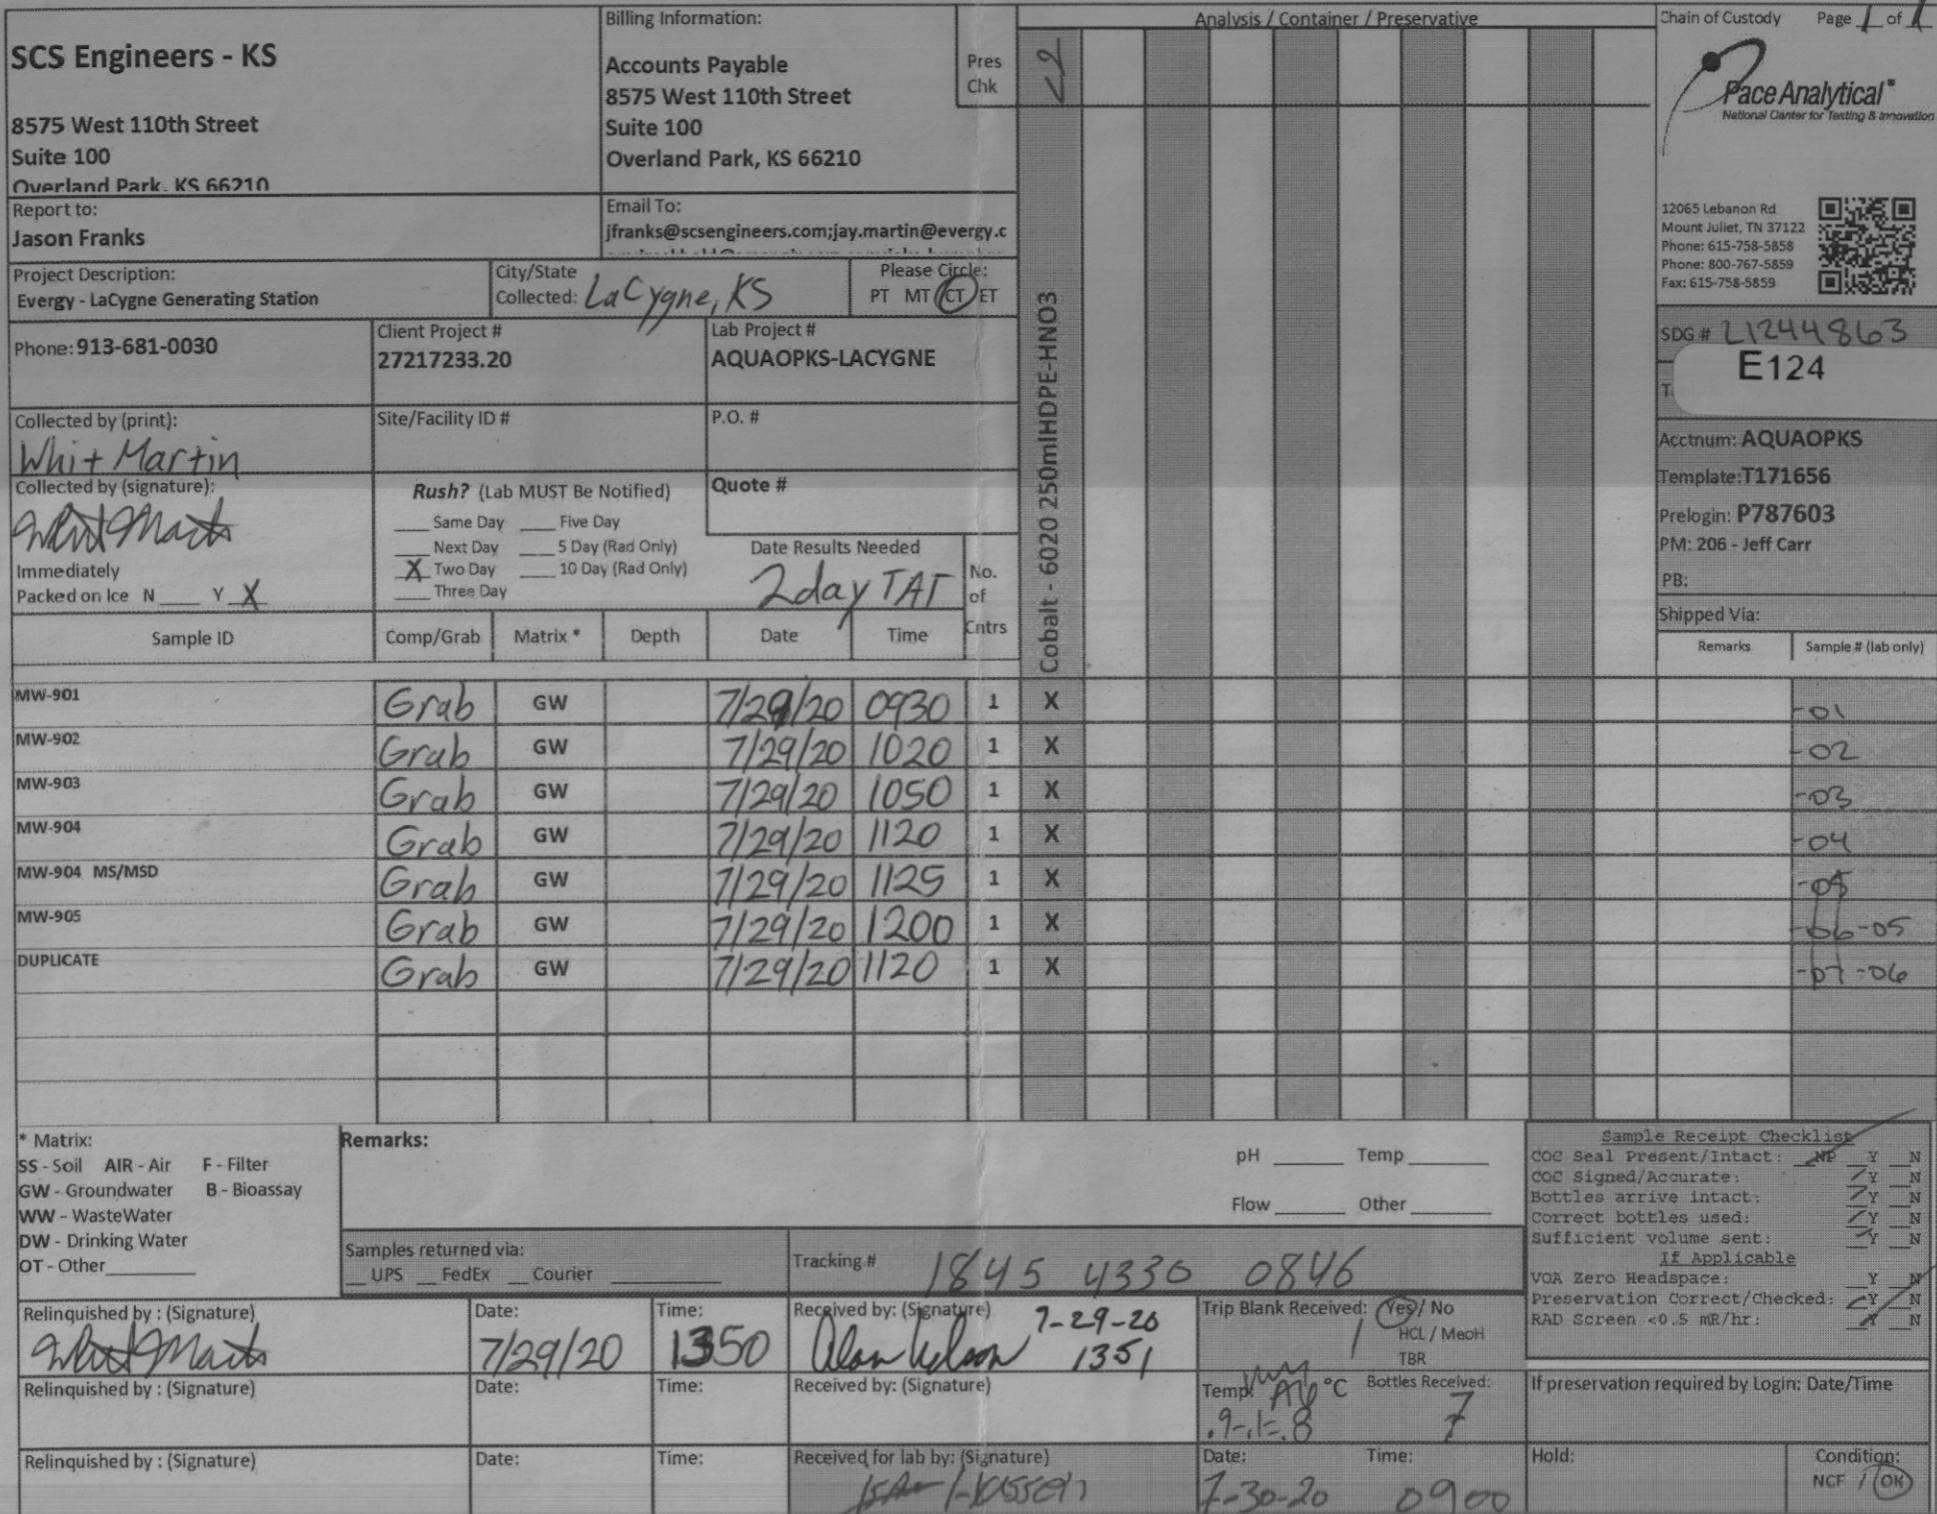 SCS Engineers - KS
8575 West 110th Street
Suite 100
Overland Park, KS 66210
Billing Information:
Accounts Payable
8575 West 110th Street
Suite 100
Overland Park, KS 66210
Pres
Chk
<2
Analysis / Container / Preservative
Chain of Custody Page 1 of 1
Pace Analytical®
National Center for Testing & Innovation
12065 Lebanon Rd
Mount Juliet, TN 37122
Phone: 615-758-5858
Phone: 800-767-5859
Fax: 615-758-5859
Report to:
Jason Franks
Email To:
jfranks@scsengineers.com;jay.martin@evergy.c
Project Description:
Evergy - LaCygne Generating Station
City/State
Collected: LaCygne, KS
Please Circle:
PT MT CT ET
Phone: 913-681-0030
Client Project #
27217233.20
Lab Project #
AQUAOPKS-LACYGNE
SDG # L1244863
E124
T
Collected by (print):
Whit Martin
Site/Facility ID #
P.O. #
Acctnum: AQUAOPKS
Template: T171656
Prelogin: P787603
PM: 206 - Jeff Carr
PB:
Shipped Via:
Collected by (signature):
Whit Martin
Immediately
Packed on Ice N ___ Y X
Rush? (Lab MUST Be Notified)
___ Same Day ___ Five Day
___ Next Day ___ 5 Day (Rad Only)
X Two Day ___ 10 Day (Rad Only)
___ Three Day
Quote #
Date Results Needed
2day TAT
No.
of
Cntrs
Cobalt - 6020 250mlHDPE-HNO3
Sample ID Comp/Grab Matrix * Depth Date Time Remarks Sample # (lab only)
MW-901 Grab GW 7/29/20 0930 1 X -01
MW-902 Grab GW 7/29/20 1020 1 X -02
MW-903 Grab GW 7/29/20 1050 1 X -03
MW-904 Grab GW 7/29/20 1120 1 X -04
MW-904 MS/MSD Grab GW 7/29/20 1125 1 X -05
MW-905 Grab GW 7/29/20 1200 1 X -06 -05
DUPLICATE Grab GW 7/29/20 1120 1 X -07 -06
* Matrix:
SS - Soil AIR - Air F - Filter
GW - Groundwater B - Bioassay
WW - WasteWater
DW - Drinking Water
OT - Other
Remarks:
pH ___ Temp ___
Flow ___ Other ___
Sample Receipt Checklist
COC Seal Present/Intact: NP Y N
COC Signed/Accurate: Y N
Bottles arrive intact: Y N
Correct bottles used: Y N
Sufficient volume sent: Y N
If Applicable
VOA Zero Headspace: Y N
Preservation Correct/Checked: Y N
RAD Screen <0.5 mR/hr: Y N
Samples returned via:
__ UPS __ FedEx __ Courier
Tracking # 1845 4330 0846
Relinquished by : (Signature)
Whit Martin
Date:
7/29/20
Time:
1350
Received by: (Signature)
Alan 7-29-20
1351
Trip Blank Received: Yes / No
HCL / MeoH
TBR
Relinquished by : (Signature)
Date:
Time:
Received by: (Signature)
Temp: °C
.9-.1=.8
Bottles Received:
7
If preservation required by Login: Date/Time
Relinquished by : (Signature)
Date:
Time:
Received for lab by: (Signature)
Date:
7-30-20
Time:
0900
Hold:
Condition:
NCF / OK